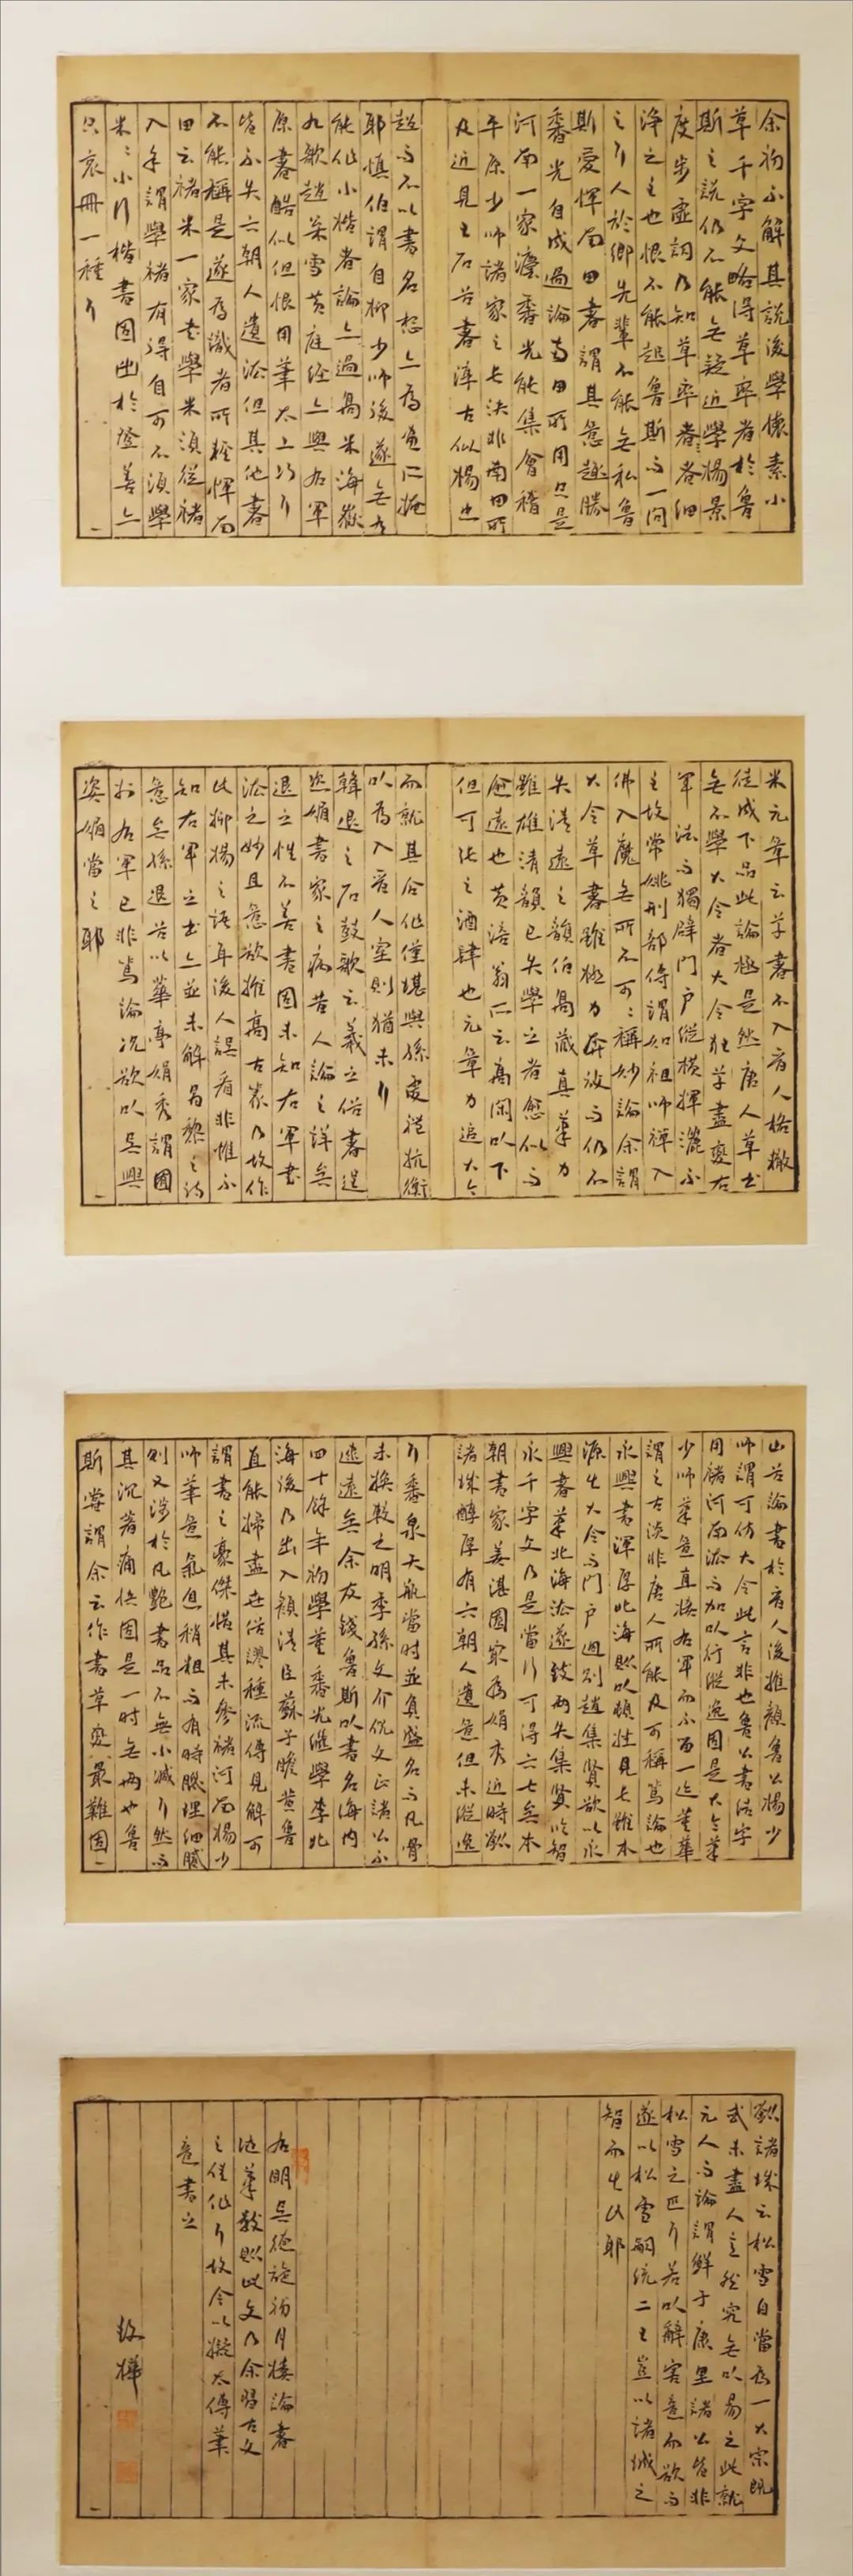 余初不解其說後學懷素小
草千字文略得草率者於魯
斯之說仍不能無疑近學楊景
度步虛詞乃知草率者各細
淨之至也恨不能起魯斯而一問
之了人於鄉先輩不能無私魯
斯愛惲南田書謂其意趣勝
香光自成過論南田所用只是
河南一家濂香光能集會稽
平原少師諸家之長決非南田所
及近見王石谷書淳古似楊也
趙而不以書名想亦為畫仁掩
耶慎伯謂自柳少師後遂無
能作小楷者論亦過高米海嶽
九歌趙榮雪黃庭經亦與右軍
原書酷似但恨用筆太工巧了
皆不失六朝人遺法但其他書
不能稱是遂為識者所輕惲南
田云褚米一家書學米須從褚
入手謂學褚有得自可不須學
米米小行楷書固出於登善亦
只哀冊一種了
米元章云草書不入晉人格轍
徒成下品此論極是然唐人草書
無不學大令者大令狂草盡變右
軍法而獨闢門戶縱橫揮灑不
主故常姚刑部倚謂如祖師禪入
佛入魔無所不可可稱妙論余謂
大令草書雖極力奔放而仍不
失清遠之韻伯高藏真筆力
雖雄清韻已失學之者愈似而
愈遠也黃涪翁亦云高閑以下
但可張之酒肆也元章力追大令
而就其合作僅堪與孫虔禮抗衡
以為入晉人室則猶未了
韓退之石鼓歌云羲之俗書逞
姿媚書家之病昔人論之詳矣
退之性不善書固未知右軍書
法之妙且意欲推高古篆乃故作
此抑揚之語耳後人誤看非惟不
知右軍之書亦並未解昌黎之詩
意矣孫退谷以華亭娟秀謂
於右軍已非篤論況欲以吳興
姿媚當之耶
山谷論書於晉人後推顏魯公楊少
師謂可仿大令此言非也魯公書活字
用褚河南法而加以行縱逸固是大令筆
少師筆意直換右軍而不面一迹董華
謂之古淡非唐人所能及可稱篤論也
永興書渾厚北海則以頓挫見長雖本
源出大令而門戶迥別趙集賢欲以永
興書筆北海法遂致兩失集賢吟智
永千字文乃是當行可得六七矣本
朝書家姜湛園最為娟秀近時劉
諸城醇厚有六朝人遺意但未縱逸
了香泉天瓶當時並負盛名而凡骨
未換較之明季孫文介倪文正諸公不
逮遠矣余友錢魯斯以書名海內
四十餘年初學董香光繼學李北
海後乃出入顏清臣蘇子瞻黃魯
直能掃盡世俗謬種流傳見解可
謂書之豪傑惜其未參褚河南楊少
師筆意氣息稍粗而有時腠理細膩
則又涉於凡艷書品不無小減了然而
其沉著痛快固是一時無兩也魯
斯嘗謂余云作書草率最難固
劉諸城云松雪自當為一大宗既
武未盡人意然究無以易之此就
元人而論謂鮮于康里諸公皆非
松雪之匹了若以辭害意而欲
遂以松雪嗣統二王豈以諸城之
智而出此耶
右明吳德旋初月樓論書
隨筆數則此文乃余習古文
之佳作了故今以擬太傅筆
意書之